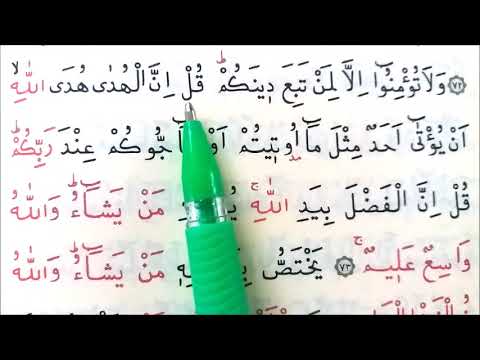 ﴿٧٢﴾ وَلَا تُؤْمِنُٓوا اِلَّا لِمَنْ تَبِعَ د۪ينَكُمْۜ قُلْ اِنَّ الْهُدٰى هُدَى اللّٰهِۙ
اَنْ يُؤْتٰٓى اَحَدٌ مِثْلَ مَٓا اُو۫ت۪يتُمْ اَوْ عِنْدَ رَبِّكُمْۜ
قُلْ اِنَّ الْفَضْلَ بِيَدِ اللّٰهِۚ مَنْ يَشَٓاءُۜ وَاللّٰهُ
وَاسِعٌ عَل۪يمٌۚ ﴿٧٣﴾ يَخْتَصُّ مَنْ يَشَٓاءُۜ وَاللّٰهُ